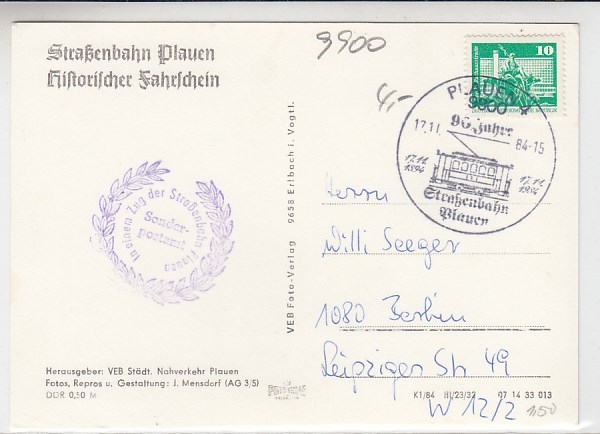 Straßenbahn Plauen
Historischer Fahrschein
9900
4,-
10
PLAUEN 1
9900
90 Jahre
17.11.
84-15
17.11.
1894
17.11.
1984
Straßenbahn
Plauen
In einem Zug der Straßenbahn Plauen
Sonder-
postamt
VEB Foto-Verlag 9658 Erlbach i. Vogtl.
Herrn
Willi Seeger
1080 Berlin
Leipziger Str 49
W 12/2
Herausgeber: VEB Städt. Nahverkehr Plauen
Fotos, Repros u. Gestaltung: J. Mensdorf (AG 3/5)
DDR 0,50 M
K1/84 III/23/32 07 14 33 013
1,50